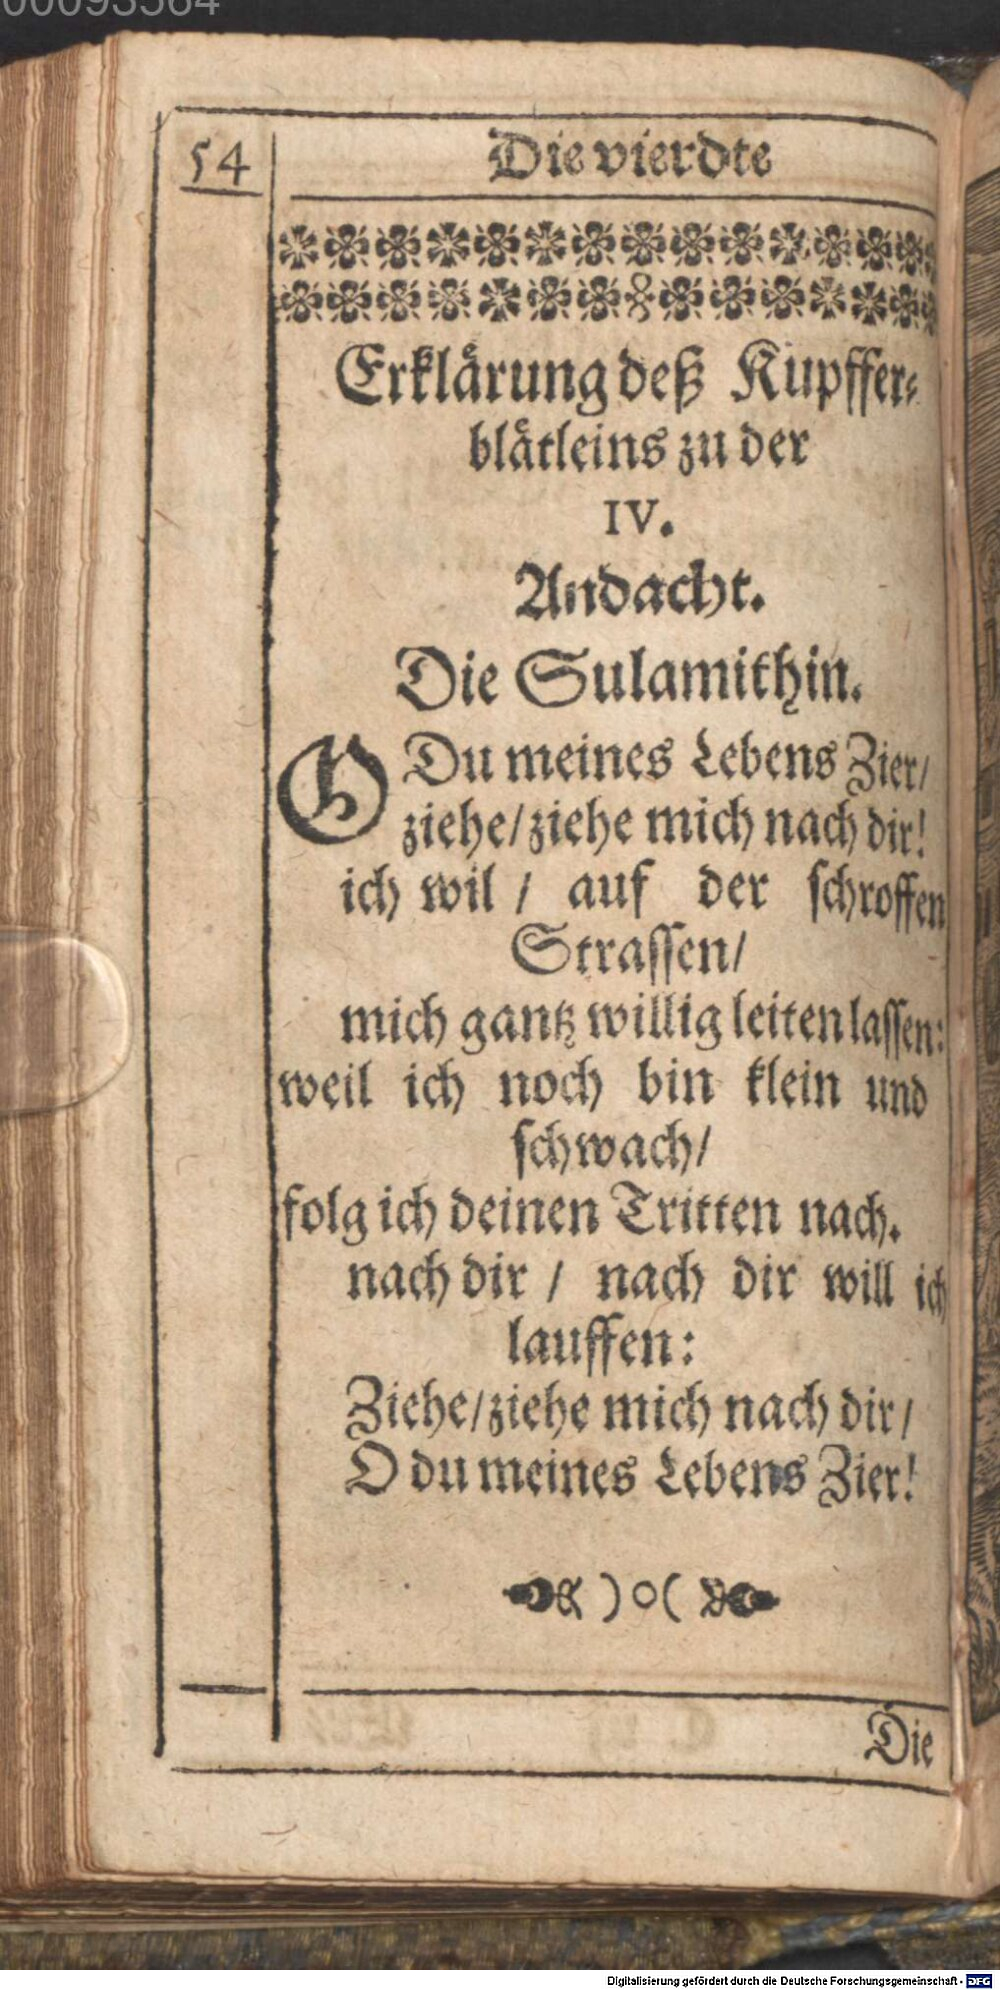 00093564
54
Die vierdte
Erklärung deß Kupffer-
blätleins zu der
IV.
Andacht.
Die Sulamithin.
O Du meines Lebens Zier/
ziehe/ziehe mich nach dir!
ich wil / auf der schroffen
Strassen/
mich gantz willig leiten lassen:
weil ich noch bin klein und
schwach/
folg ich deinen Tritten nach.
nach dir / nach dir will ich
lauffen:
Ziehe/ziehe mich nach dir/
O du meines Lebens Zier!
)o(
Die
Digitalisierung gefördert durch die Deutsche Forschungsgemeinschaft - DFG